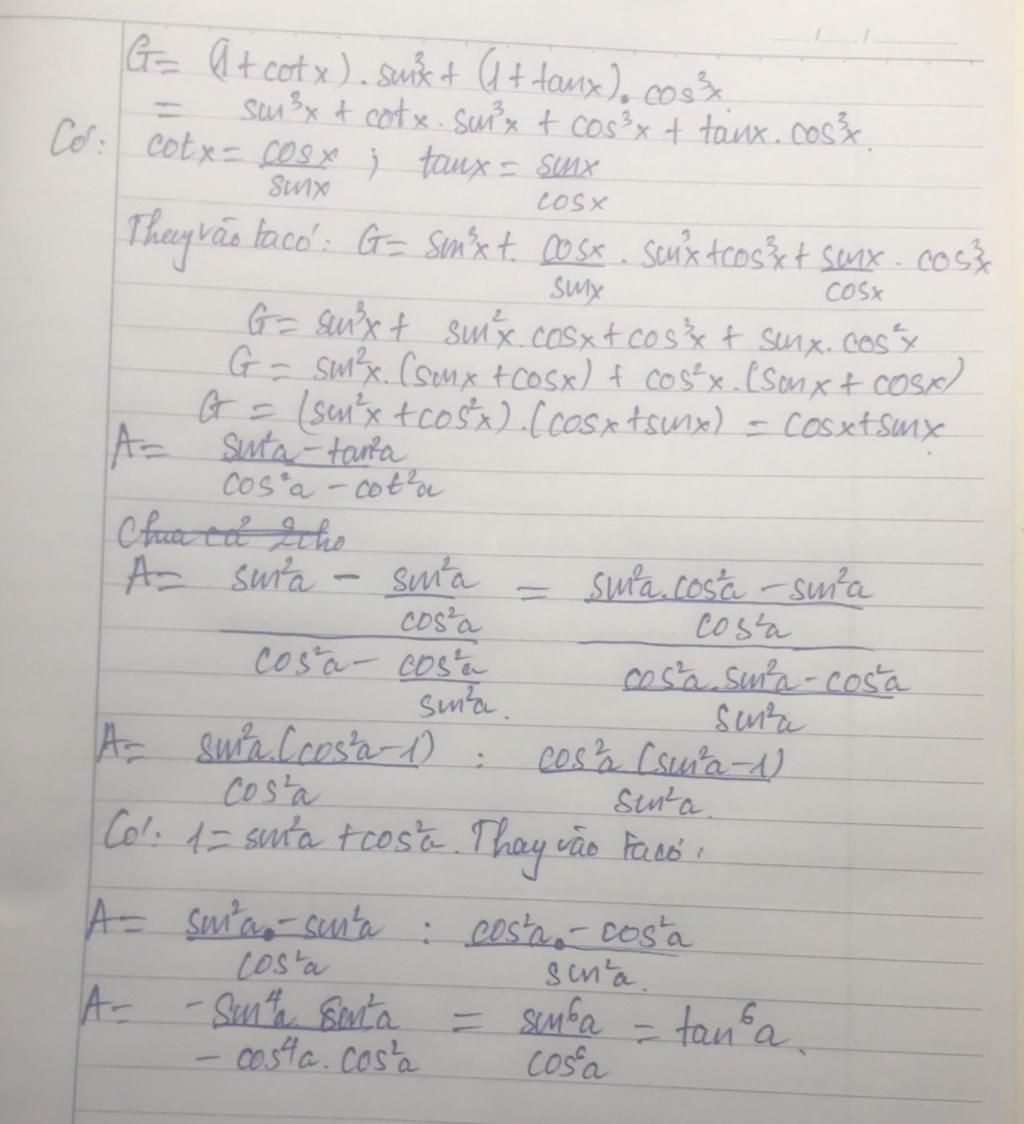 G = (1 + cotx) . sin³x + (1 + tanx) . cos³x.
= sin³x + cotx . sin³x + cos³x + tanx . cos³x.
Có: cotx = cosx/sinx ; tanx = sinx/cosx
Thay vào ta có: G = sin³x + cosx/sinx . sin³x + cos³x + sinx/cosx . cos³x
G = sin³x + sin²x . cosx + cos³x + sinx . cos²x
G = sin²x . (sinx + cosx) + cos²x . (sinx + cosx)
G = (sin²x + cos²x) . (cosx + sinx) = cosx + sinx
A = (sin²a - tan²a)/(cos²a - cot²a)
A = (sin²a - sin²a/cos²a)/(cos²a - cos²a/sin²a) = ((sin²a . cos²a - sin²a)/cos²a)/((cos²a . sin²a - cos²a)/sin²a)
A = sin²a . (cos²a - 1)/cos²a : cos²a (sin²a - 1)/sin²a.
Có: 1 = sin²a + cos²a. Thay vào ta có:
A = sin²a . - sin²a/cos²a : cos²a . - cos²a/sin²a.
A = (- sin⁴a . sin²a)/(- cos⁴a . cos²a) = sin⁶a/cos⁶a = tan⁶a.